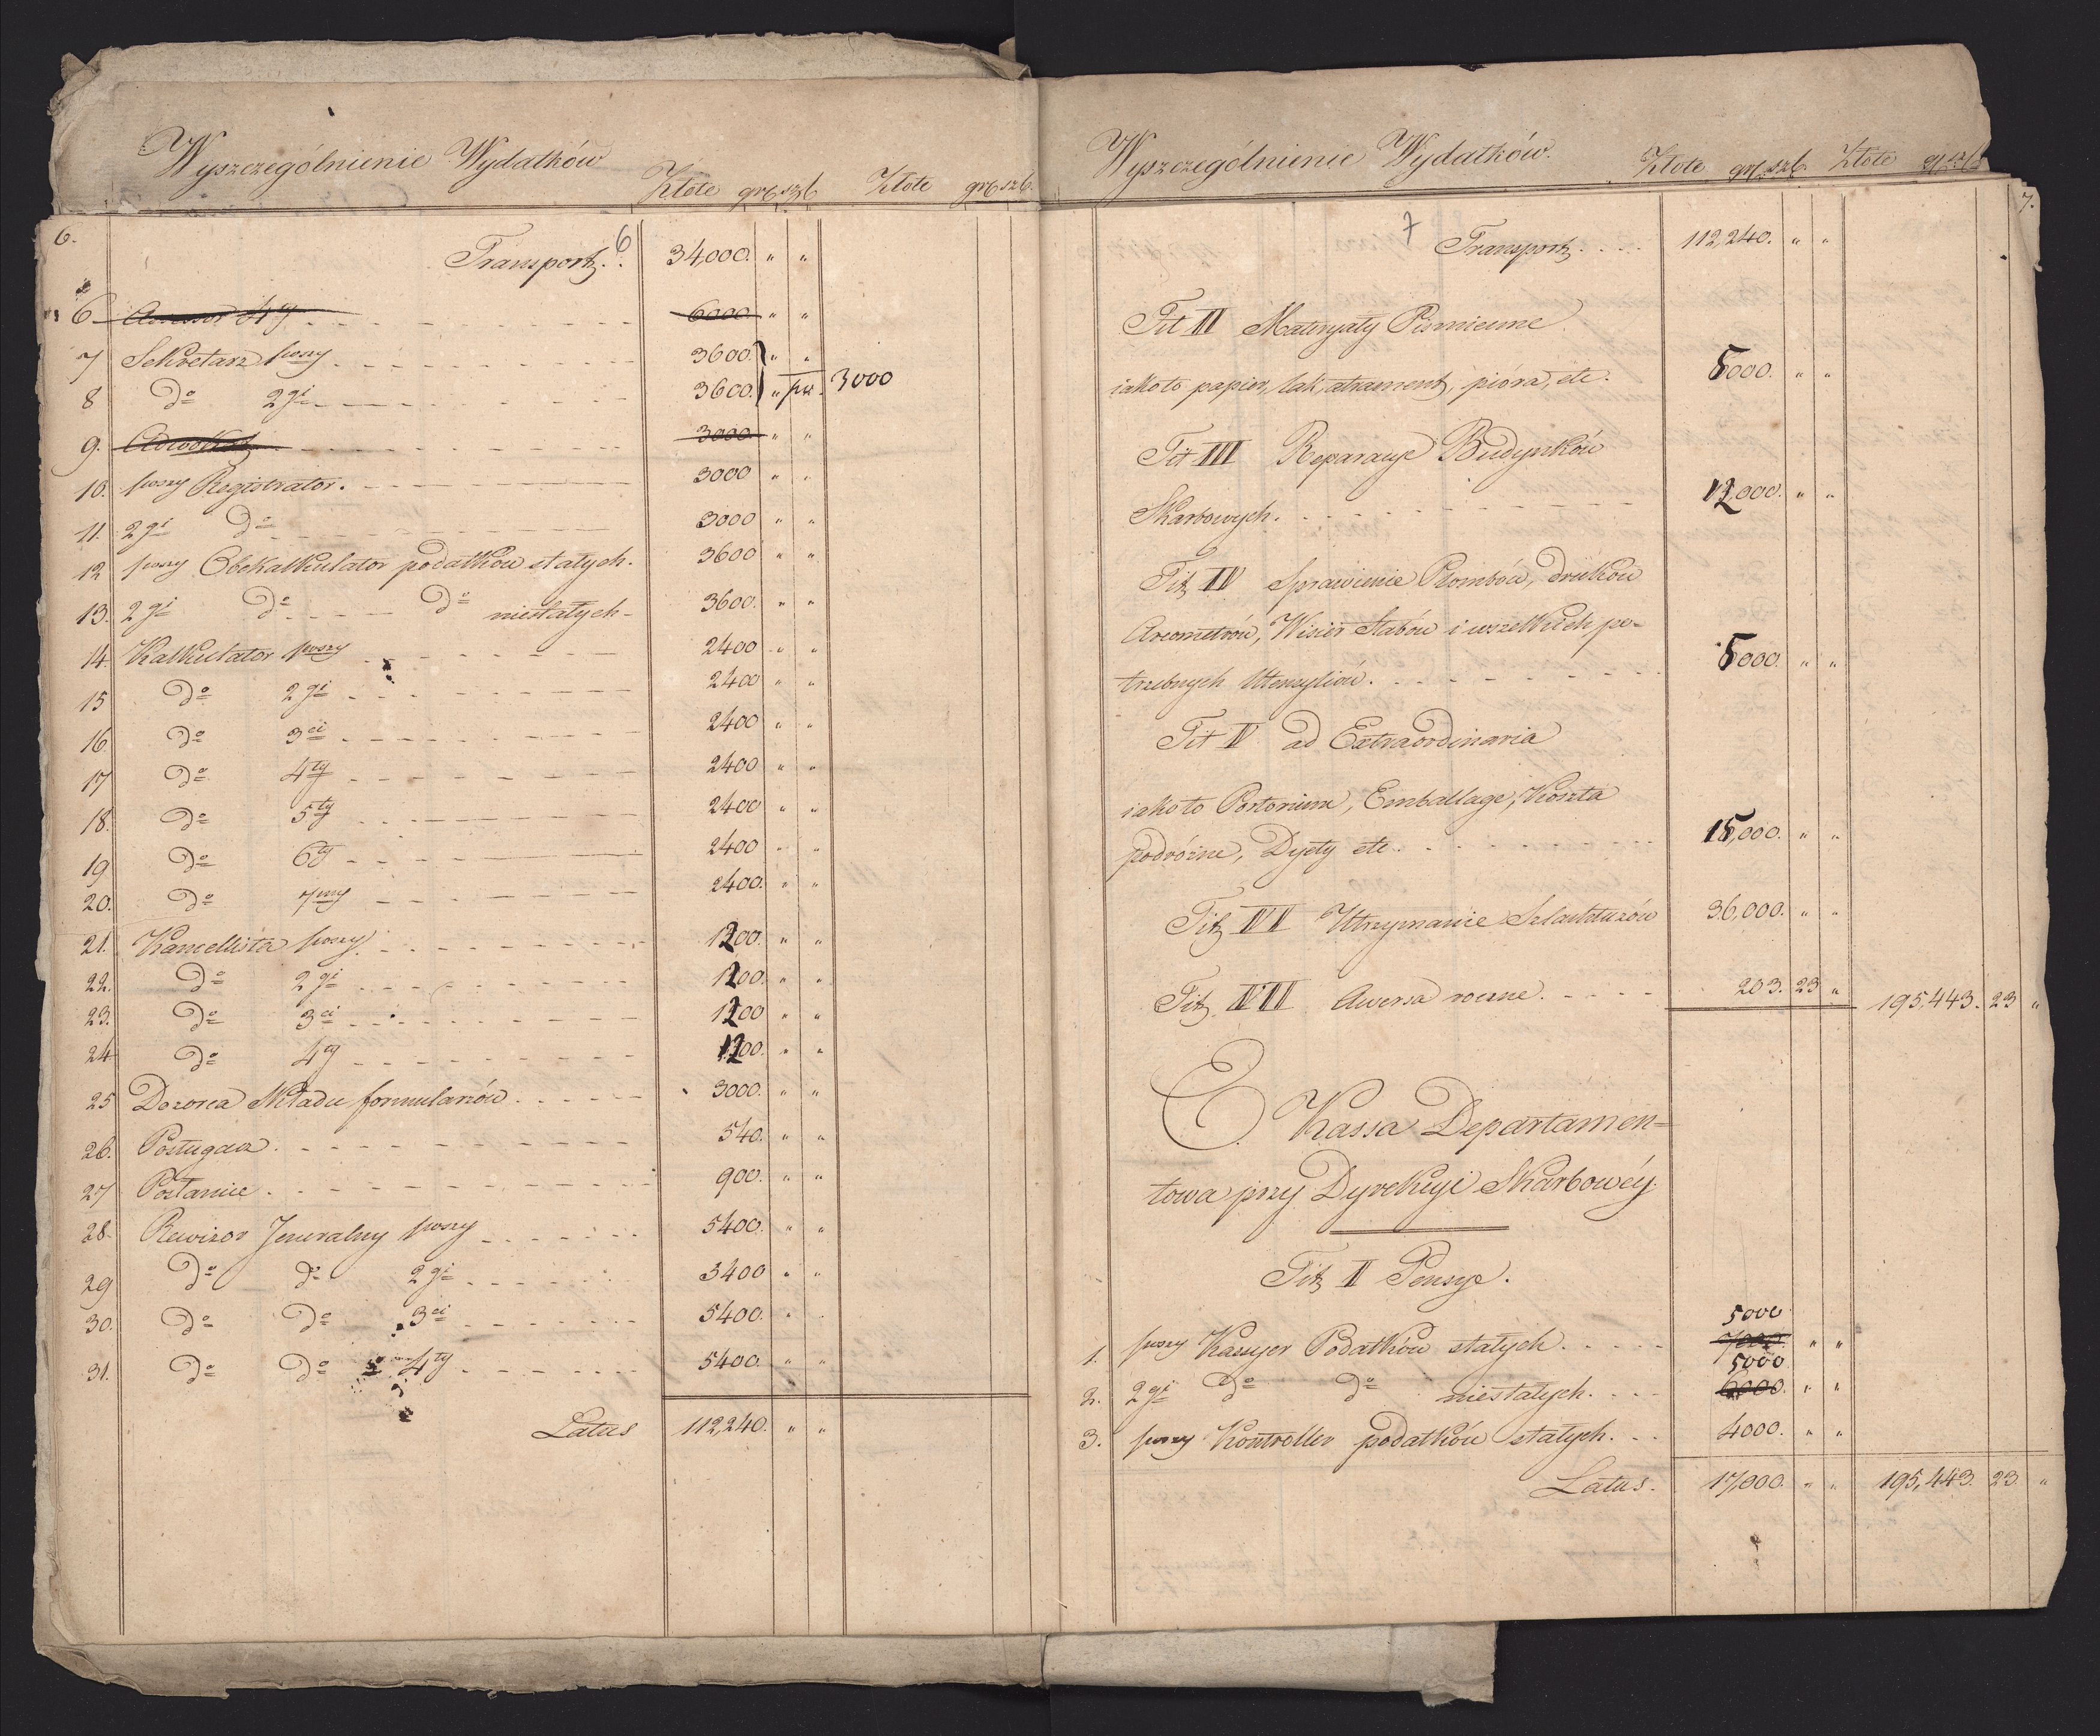 Wyszczególnienie Wydatków
Złote gr: szl: Złote gr: szl:
6.
6
Transport . . 34,000. " "
6 Assessor 4ty . . . 6000 " "
7 Sekretarz pwszy . . . 3600. " "
8 Do 2gi . . . 3600. " po. 3000
9. Adwokat . . . 3000 " "
10. pwszy Registrator . . . 3000 " "
11. 2gi Do . . . 3000 " "
12 pwszy Oberkalkulator podatków stałych. 3600 " "
13. 2gi Do . . . Do niestałych 3600. " "
14 Kalkulator pwszy . . . 2400 " "
15 Do 2gi . . . 2400 " "
16. Do 3ci . . . 2400 " "
17 Do 4ty . . . 2400 " "
18. Do 5ty . . . 2400 " "
19 Do 6ty . . . 2400 " "
20. Do 7my . . . 2400. " "
21. Kancellista pwszy . . . 1200. " "
22. Do 2gi . . . 1200. " "
23. Do 3ci . . . 1200 " "
24 Do 4ty . . . 1200. " "
25 Dozorca Składu formularzów . . . 3000. " "
26. Posługacz . . . 540. " "
27 Posłaniec . . . 900. " "
28. Rewizor Jeneralny pwszy . . . 5400. " "
29 Do Do 2gi . . . 5400 " "
30. Do Do 3ci . . . 5400. " "
31. Do Do 4ty . . . 5400 " "
Latus 112,240. " "
Wyszczególnienie Wydatków.
Złote gr: szl: Złote gr: szl:
7.
7
Transport . . . 112,240. " "
Tit II Materyały Piśmienne
iakoto papier, lak, atrament, pióra, etc. 5000. " "
Tit III Reparacye Budynków
Skarbowych . . . 12,000. " "
Tit IV Sprawienie Plombów, druków
Areometrów, Wisier Stabów i wszelkich po=
trzebnych Utensyliów . . . 5000 " "
Tit V ad Extraordinaria
iakoto Portorium, Emballage, Koszta
podróżne, Dyety etc . . . 15,000. " "
Tit VI Utrzymanie Szlachtuzów 36,000. " "
Tit VII Aversa roczne . . . 203. 23 " 195,443. 23 "
E. Kassa Departamen=
towa przy Dyrekcyi Skarbowéy.
Tit I Pensye.
5000
1. pwszy Kassyer Podatków stałych . . . 7000 " "
5000
2. 2gi Do Do niestałych . . . 6000. " "
3. pwszy Kontroller podatków stałych . . . 4000. " "
Latus. 17,000. " " 195,443. 23. "